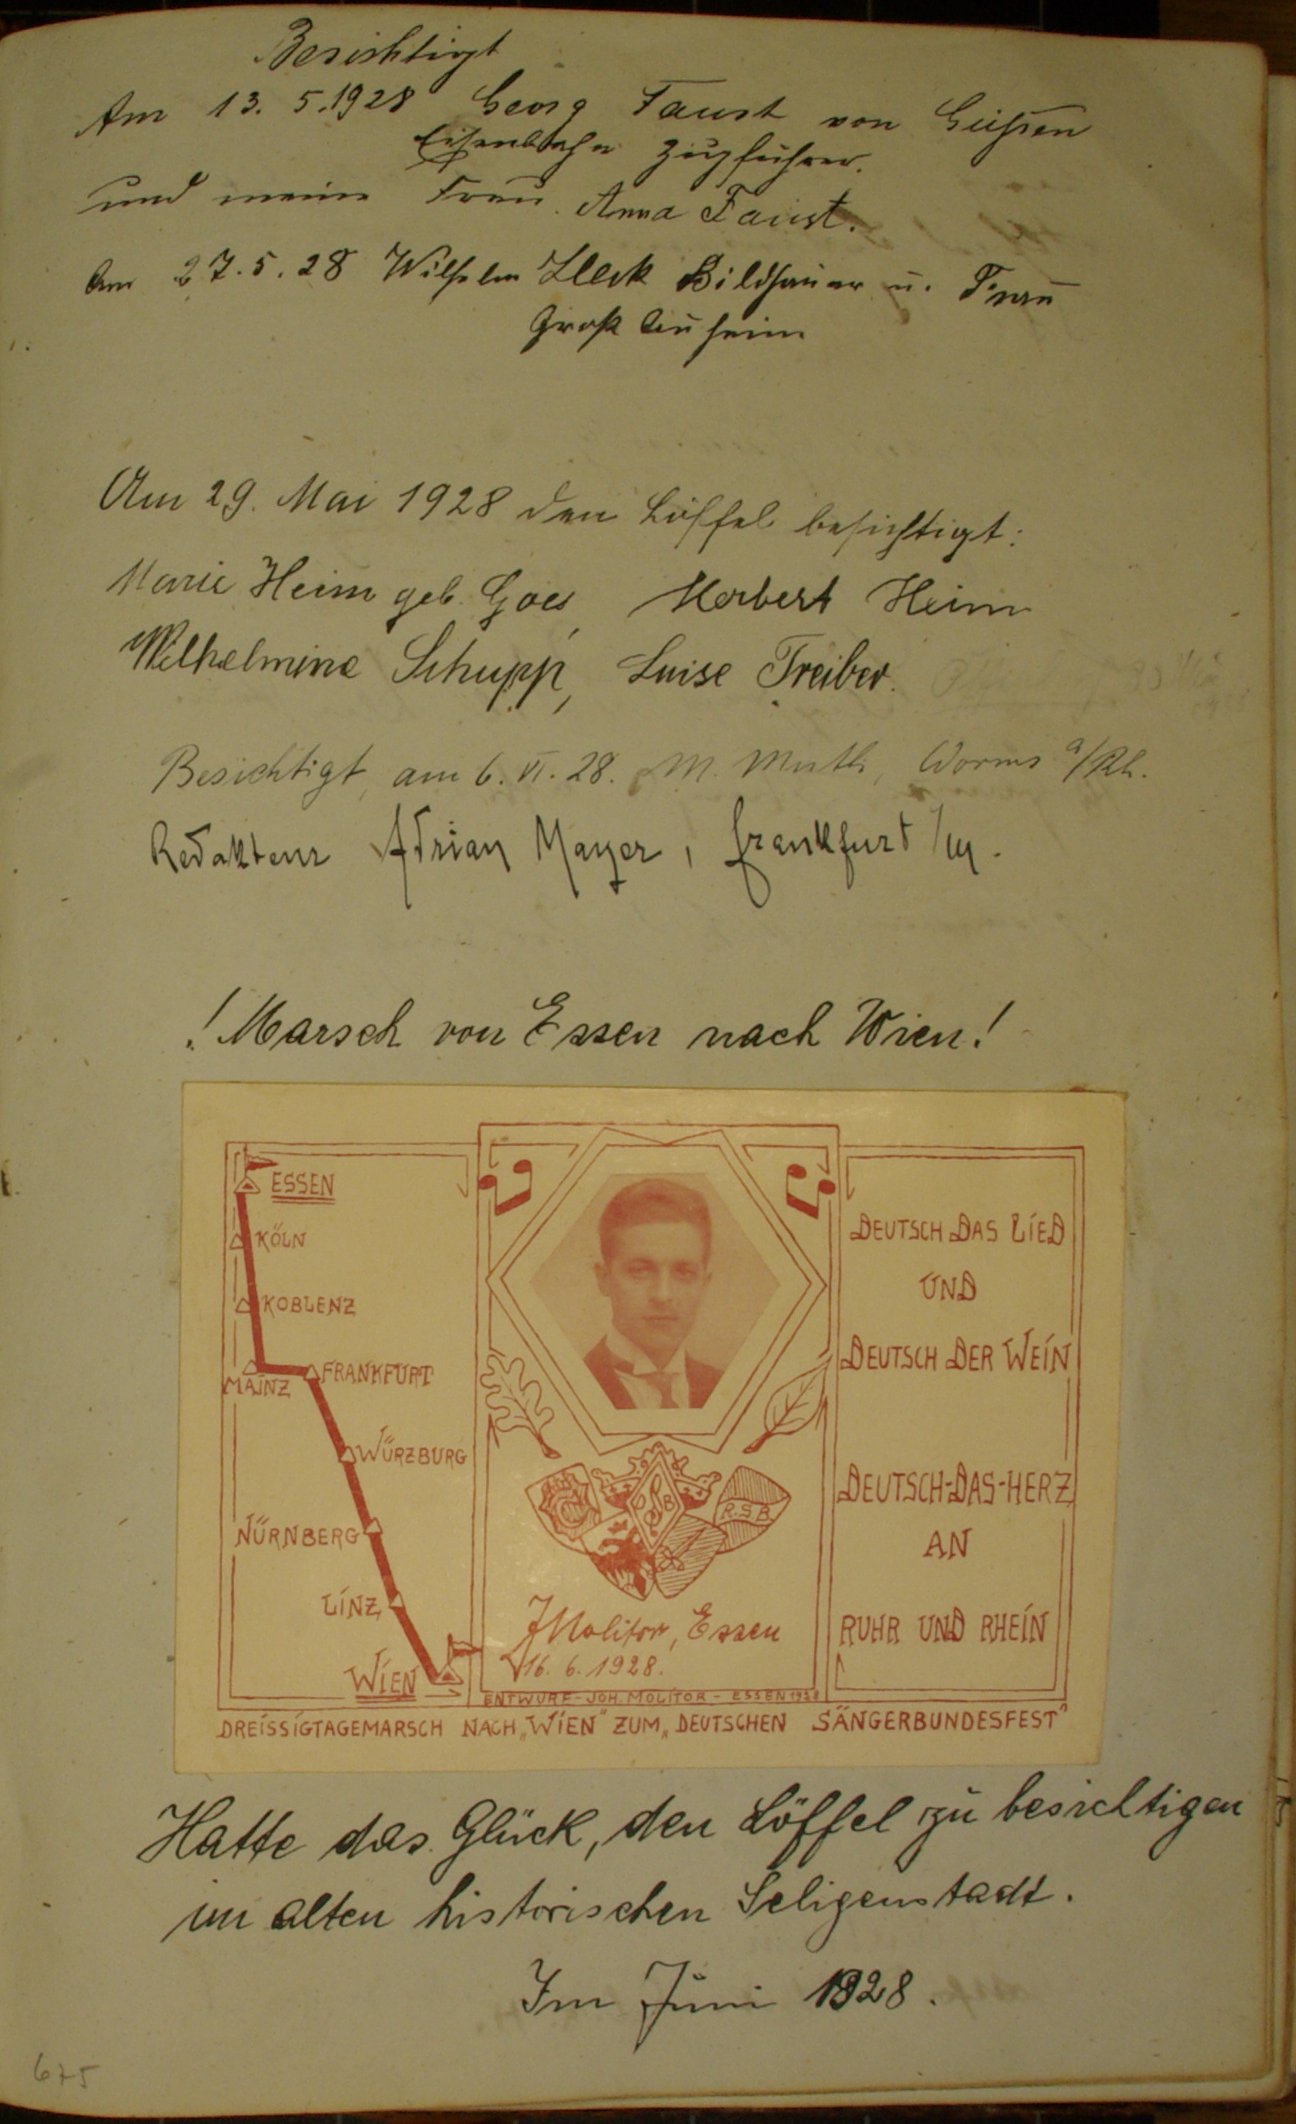 Besichtigt
Am 13. 5. 1928 Georg Faust von Gießen
Eisenbahn Zugführer.
und meine Frau Anna Faust.
Am 27. 5. 28 Wilhelm Bildhauer u. Frau
Groß Auheim
Am 29. Mai 1928 den Löffel besichtigt:
Marie Heim geb. Goes, Herbert Heim
Wilhelmine Schupp, Luise Treiber.
Besichtigt, am 6. VI. 28. M. Muth, Worms a/Rh.
Redakteur Adrian Mayer, Frankfurt /M.
! Marsch von Essen nach Wien!
ESSEN
KÖLN
KOBLENZ
MAINZ
FRANKFURT
WÜRZBURG
NÜRNBERG
LINZ
WIEN
R.S.B.
J Molitor, Essen
16. 6. 1928.
ENTWURF - JOH. MOLITOR - ESSEN 1928
DEUTSCH DAS LIED
UND
DEUTSCH DER WEIN
DEUTSCH-DAS-HERZ
AN
RUHR UND RHEIN
DREISSIGTAGEMARSCH NACH „WIEN" ZUM „DEUTSCHEN SÄNGERBUNDESFEST"
Hatte das Glück, den Löffel zu besichtigen
im alten historischen Seligenstadt.
Im Juni 1928.
675